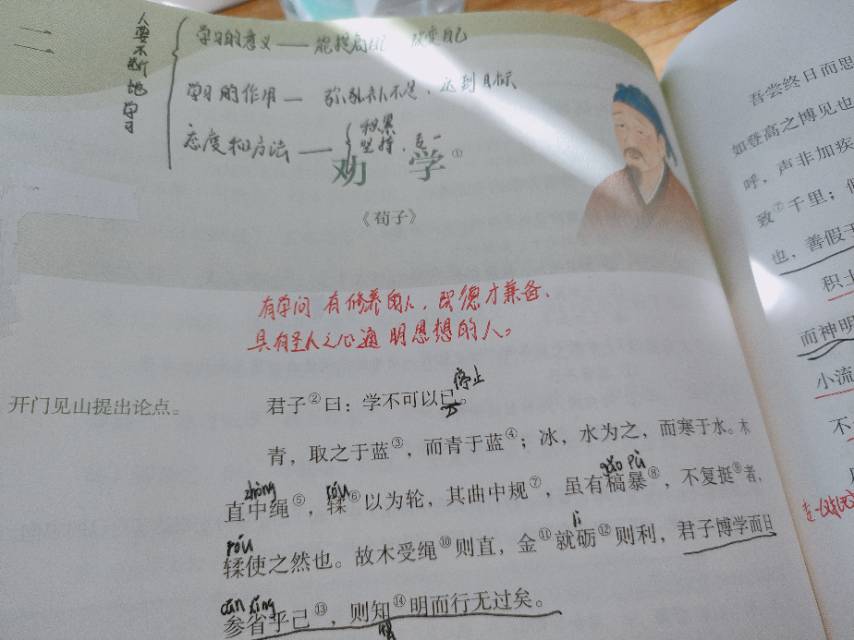 二
人要不断地学习
学习的意义——能提高自己 改变自己
学习的作用— 弥补不足、达到目标
态度和方法——积累
坚持、专一
劝 学①
《荀子》
有学问 有修养的人，即德才兼备、
具有圣人之心通明思想的人。
开门见山提出论点。
停止
君子②曰：学不可以已。
青，取之于蓝③，而青于蓝④；冰，水为之，而寒于水。木
zhòng róu gǎo pù
直中绳⑤，𫐓⑥以为轮，其曲中规⑦，虽有槁暴⑧，不复挺⑨者，
róu lì
𫐓使之然也。故木受绳⑩则直，金⑪就砺⑫则利，君子博学而日
cān xǐng
参省乎己⑬，则知⑭明而行无过矣。
吾尝终日而思
如登高之博见也
呼，声非加疾
致⑦千里；假
也，善假于
积土
而神明
小流
不